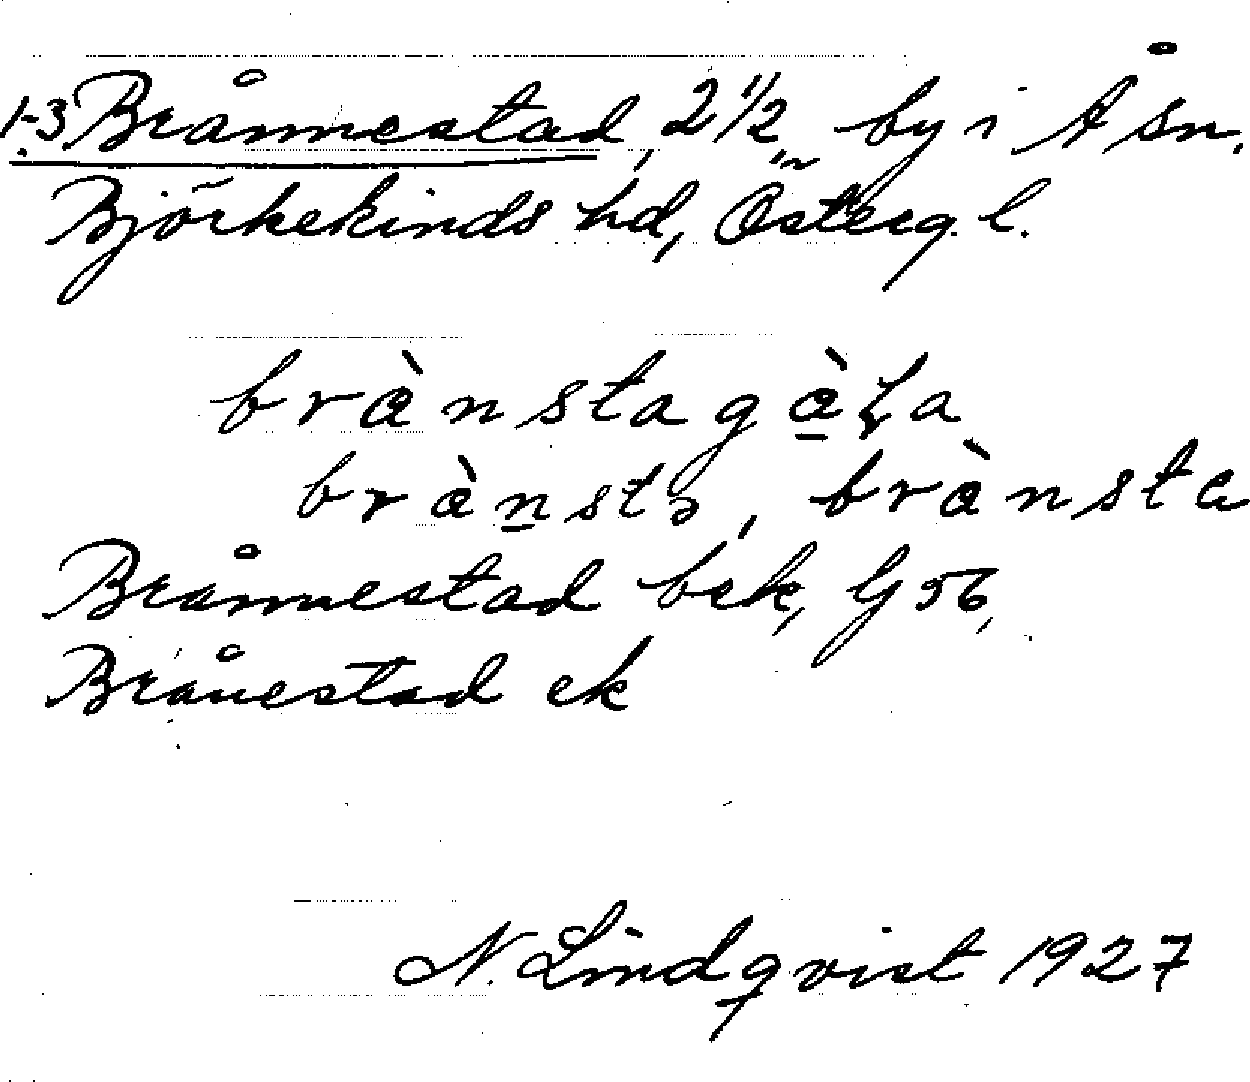 1-3 Brånnestad, 2 1/2 by i Å sn.
Björkekinds hd, Österg. l.
brœ̀nstagœ̀ɽa
brœ̀n̲stɔ, brœ̀nsta
Brånnestad bek, Gj 56,
Brånestad ek
N. Lindqvist 1927